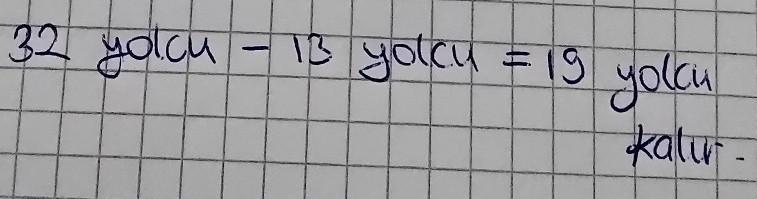 32 yolcu - 13 yolcu = 19 yolcu
kalır.